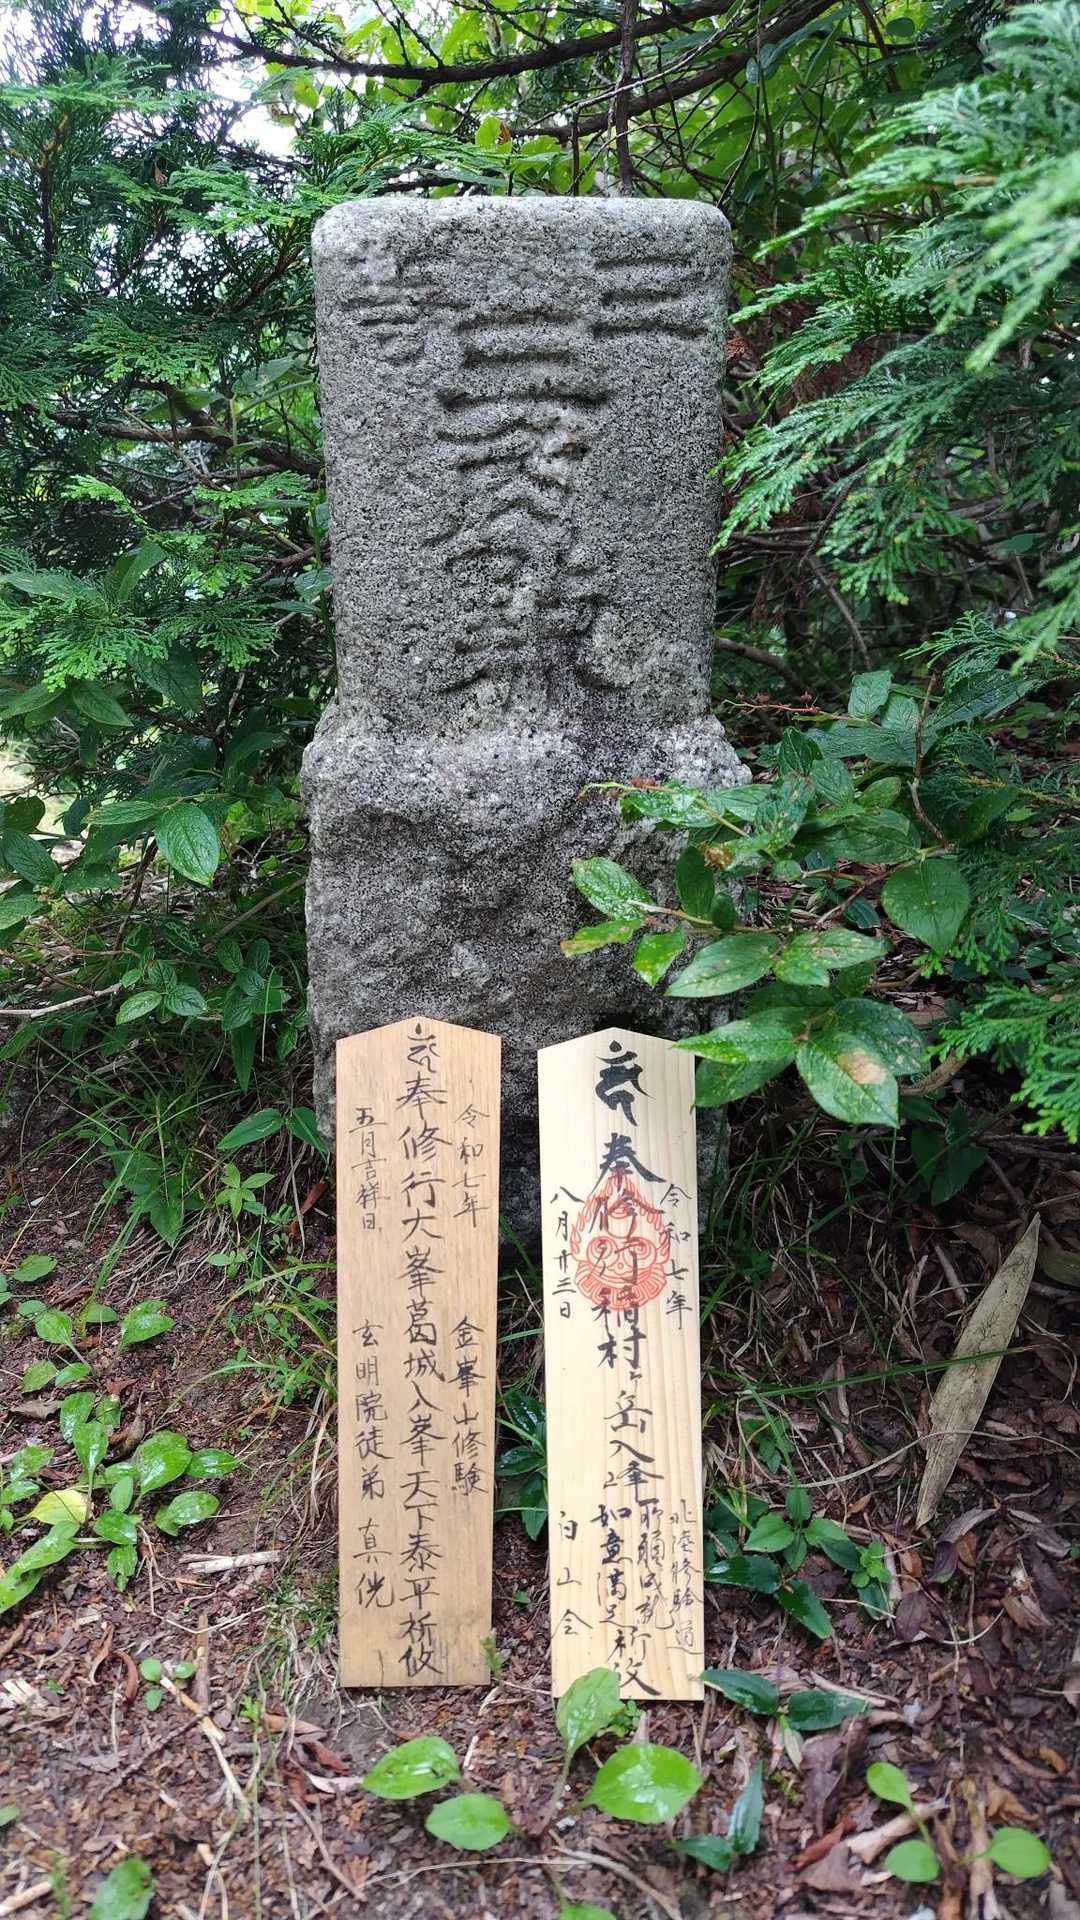 三
奉修行大峯葛城入峯天下泰平祈攸
令和七年
金峯山修験
五月吉祥日
玄明院徒弟
真侊
奉修行稲村ヶ岳入峰
所願成就
如意満足
祈攸
令和七年
北陸修験道
八月廿三日
白山会